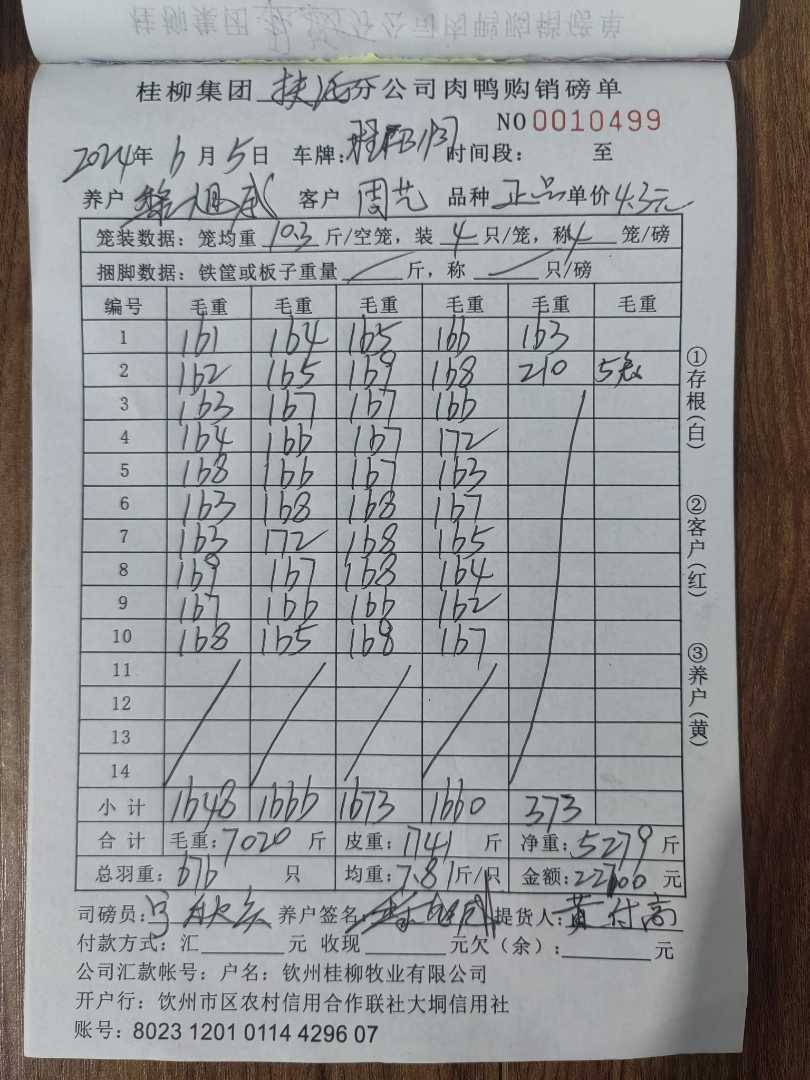 桂柳集团 分公司肉鸭购销磅单
NO 0010499
2024年 6月 5日 车牌: 时间段: 至
养户 客户 周艺 品种 正品 单价 4.3元
笼装数据：笼均重 10.3 斤/空笼，装 4 只/笼，称 4 笼/磅
捆脚数据：铁筐或板子重量 斤，称 只/磅
编号 毛重 毛重 毛重 毛重 毛重 毛重
1 161 164 165 166 163
2 162 165 169 168 210 5
3 163 167 167 166
4 164 166 167 172
5 168 166 167 163
6 163 168 168 167
7 163 172 168 165
8 169 167 168 164
9 167 166 166 162
10 168 165 168 167
11
12
13
14
小计 1648 1666 1673 1660 373
合计 毛重: 7020 斤 皮重: 1741 斤 净重: 5279 斤
总羽重: 676 只 均重: 7.81 斤/只 金额: 22700 元
司磅员: 养户签名: 提货人: 黄付高
付款方式：汇 元 收现 元欠（余）: 元
公司汇款帐号：户名：钦州桂柳牧业有限公司
开户行：钦州市区农村信用合作联社大垌信用社
账号：8023 1201 0114 4296 07
①存根(白)
②客户(红)
③养户(黄)